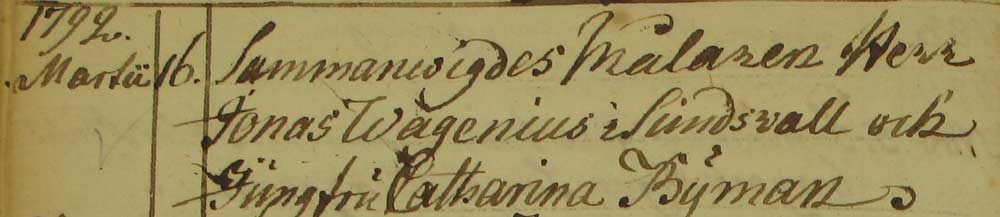 1792.
Martii 16. Sammanwigdes Målaren Herr
Jonas Wagenius i Sundsvall och
Jungfru Catharina Byman